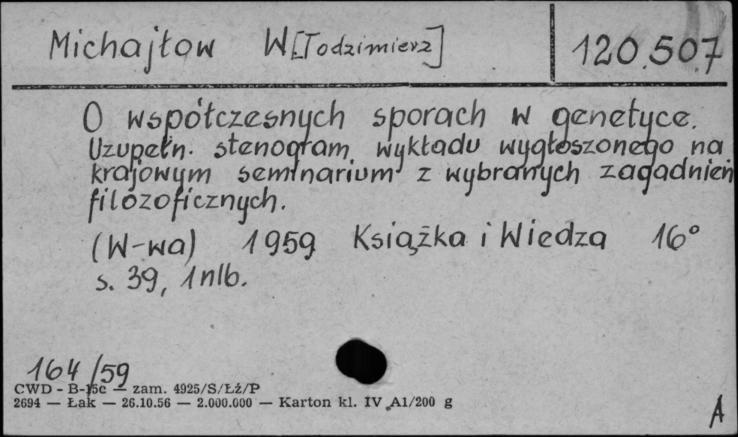 Michajłow W[łodzimierz]
120.507
O współczesnych sporach w genetyce.
Uzupełn. stenogram wykładu wygłoszonego na
krajowym seminarium z wybranych zagadnień
filozoficznych.
(W-wa) 1959 Książka i Wiedza 16°
s. 39, 1 nlb.
164/59
CWD - B-15c — zam. 4925/S/Łź/P
2694 — Łak — 26.10.56 — 2.000.000 — Karton kl. IV A1/200 g
A